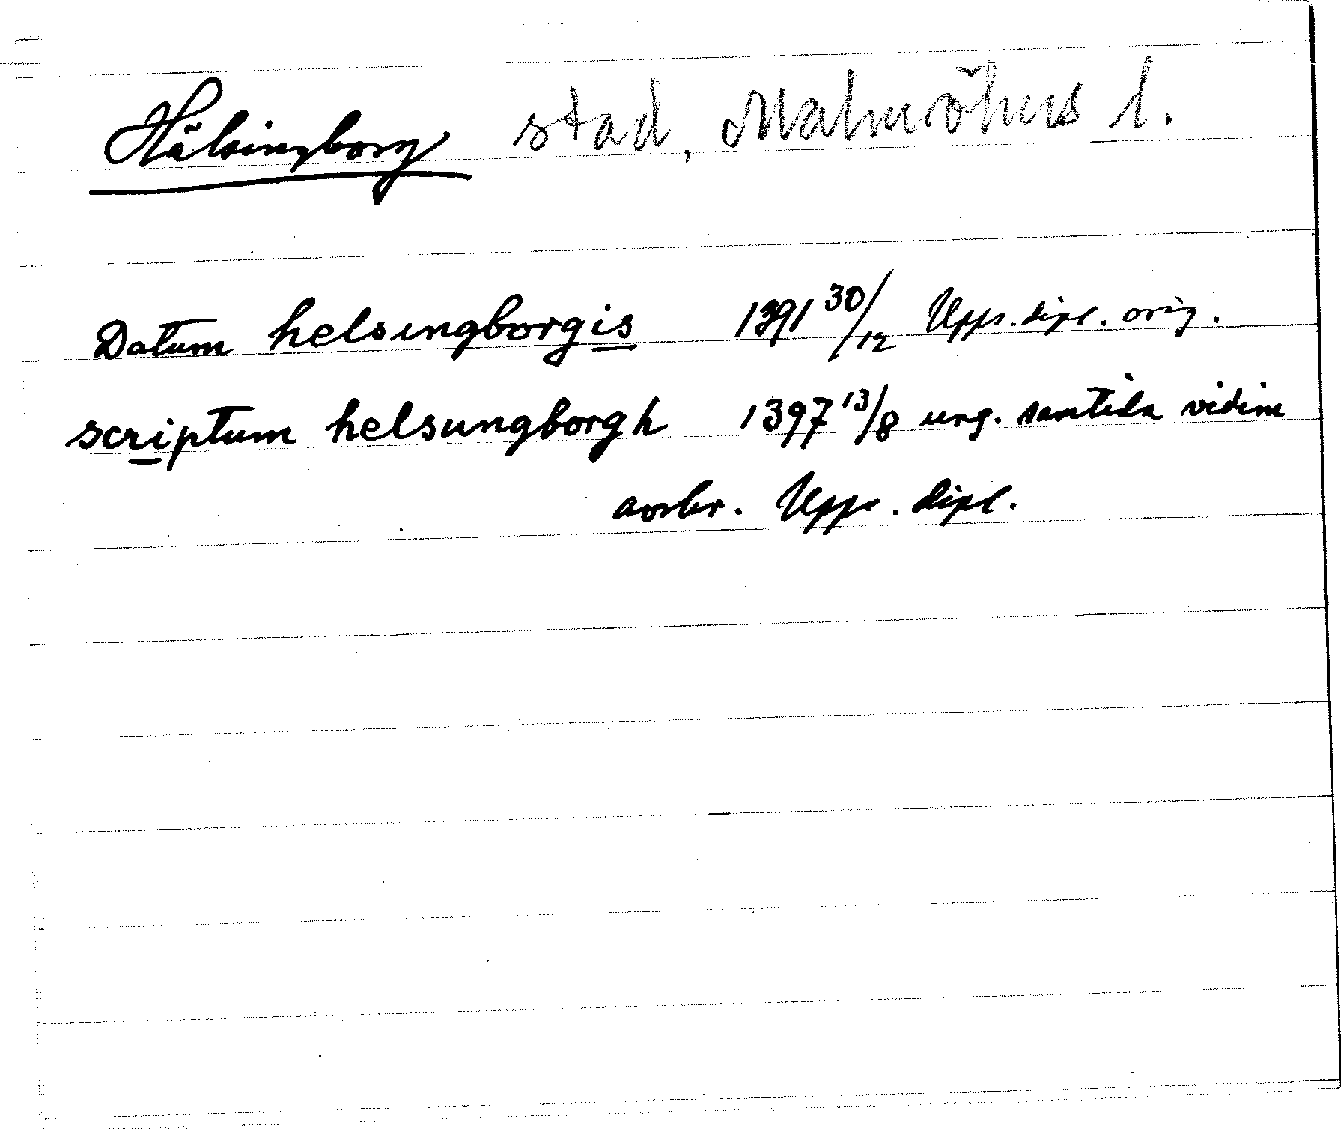 Hälsingborg stad, Malmöhus l.
Datum helsingborgis 1391 30/12 Upps. dipl. orig.
scriptum helsungborgh 1397 13/8 ung. samtida vidim
avskr. Upps. dipl.